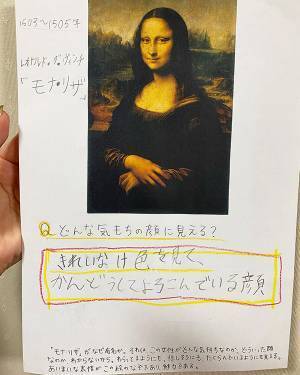 1503〜1505年
レオナルド・ダ・ヴィンチ
「モナ・リザ」
Q どんな気もちの顔に見える?
きれいなけ色を見て、
かんどうしてよろこんでいる顔
「モナ・リザ」がなぜ有名か。それは、この女性がどんな気持ちなのか、どういった顔
なのか、わからないから。わらってるようにも、悲しそうにも、たくらんでいるようにも見える。
あいまいな表情がこの絵のなぞであり、魅力である。